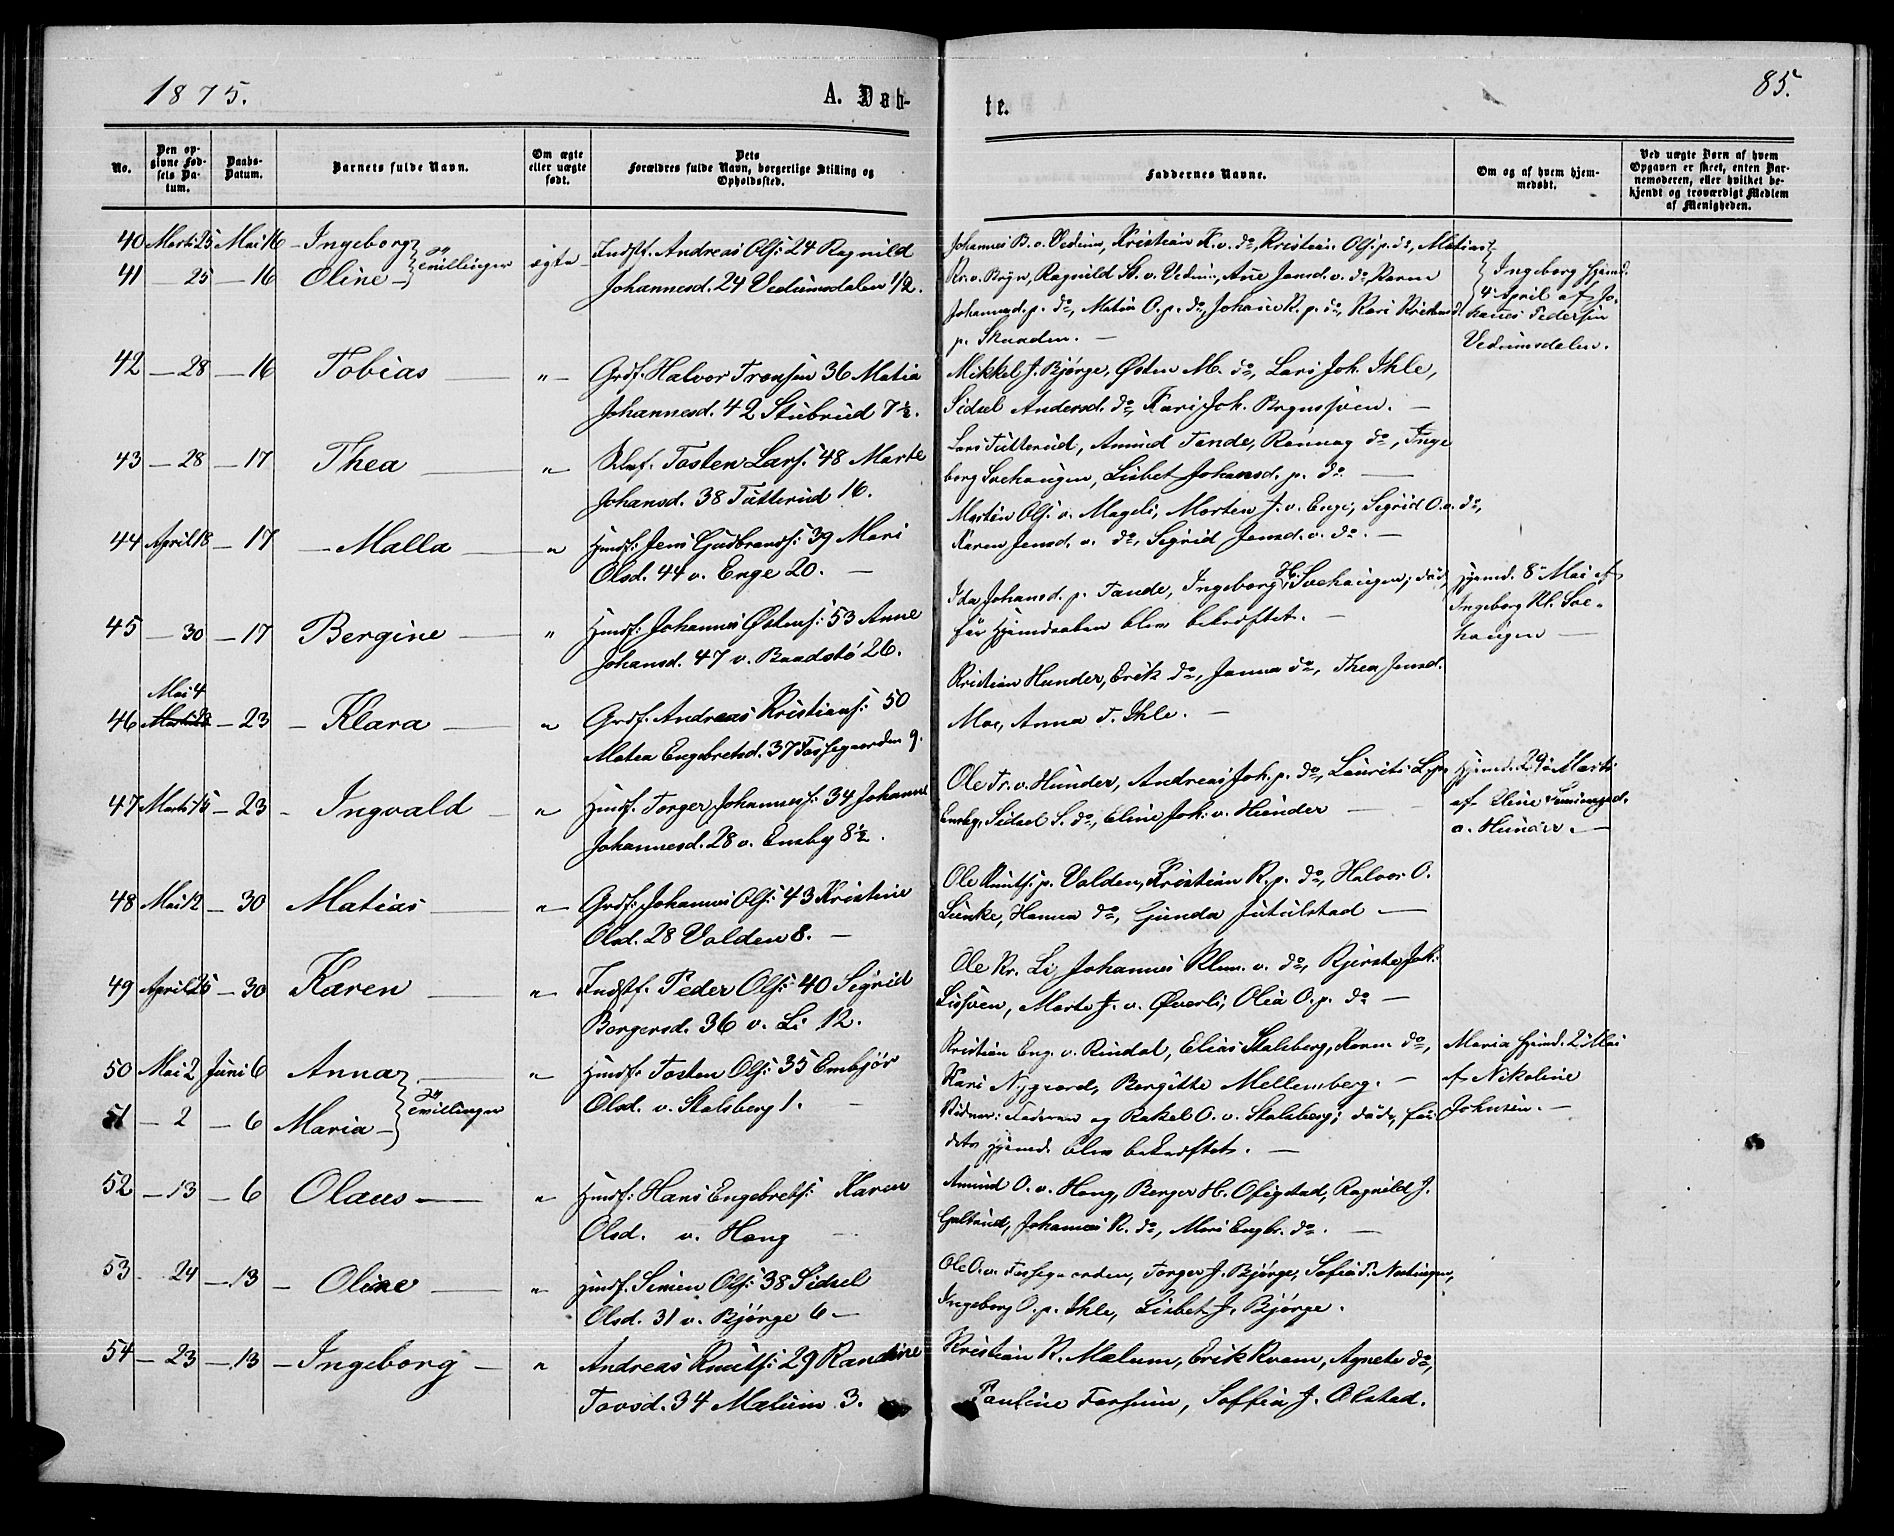 1875.
A. Døb-
te.
85.
No.
Den op-
givne Fød-
sels Da-
tum.
Daabs-
Datum.
Barnets fulde Navn.
Om ægte
eller uægte
født.
Dets
Forældres fulde Navn, borgerlige Stilling og
Opholdssted.
Faddernes Navne.
Om og af hvem hjem-
medøbt.
Ved uægte Børn af hvem
Opgaven er skeet, enten Bar-
nemoderen, eller hvilket be-
kjendt og troværdigt Medlem
af Menigheden.
40 Marts 25 Mai 16 - Ingeborg
41 - 25 - 16 Oline - Tvillinger ægte
Indst. Andreas Ols: 24 Ragnild
Johannesd. 24 Vedumsdalen 1/2.
Johannes B. v. Vedum, Kristian K. v. do, Kristian Ols: p. do, Matias
Kr. v. Bryn, Ragnild St. v. Vedum, Ane Jensd. v. do, Karen
Johannesd. p. do, Matea O. p. do, Johan K. p. do, Kari
p. Skaaden. -
Ingeborg hjemd.
4 April af Jo-
hannes Pedersen
Vedumsdalen.
42 - 28 - 16 Tobias - " -
Grdf. Halvor Tronsen 36 Matia
Johannesd. 42 Stubrud 7½.
Mikkel J. Bjørge, Østen M. do, Lars Joh. Ihle,
Sidsel Andersd. do, Kari Joh. -
43 - 28 - 17 Thea - "
Tosten Lars. 48 Marte
Johansd. 38 Tutterud 16.
Lars Tutterud, Amund Tande, Rønnaug do, Inge
borg Svehaugen, Lisbet Johansd. p. do -
44 April 18 - 17 - Malla - "
Huusf. Jens Gudbrands: 39 Mari
Olsd. 44 v. Enge 20. -
Martin Ols: v. Mageli, Morten J. v. Enge, Sigrid O. v. do,
Karen Jensd. v. do, Sigrid Jensd. v. do. -
45 - 30 - 17 Bergine - "
Huusf. Johannes Østens: 53 Anne
Johansd. 47 v. Baadstø 26.
Ida Johansd. p. Tande, Ingeborg H. Svehaugen; død
før Hjemdaaben blev bekræftet. -
Hjemd. 8 Mai af
Ingeborg Kl. Sve-
haugen -
Mai 4
46 - 23 - Klara - "
Grdf. Andreas Kristians: 50
Matea Engebretsd. 37 Fossegaarden 9.
Kristian Hunder, Erik do, Janna do, Thea Jensd.
Moe, Anna T. Ihle. -
47 Marts 15 - 23 - Ingvald - "
Huusf. Torger Johanness: 34 Johanne
Johannesd. 28 v. Enaby 8½.
Ole Tr. v. Hunder, Andreas Joh. p. do, Laurits L. p.
Enaby, Sidsel S. do, Eline Joh. v. Hunder -
Hjemd. 29 Marts
af Eline
v. Hunder. -
48 Mai 12 - 30 Matias - "
Grdf. Johannes Ols: 43 Kristine
Olsd. 28 Volden 8. -
Ole Knuts: p. Volden, Kristian K. p. do, Halvor O.
Lunke, Hanna do, Gunda Jutulstad -
49 April 25 - 30 Karen - "
Indst. Peder Ols: 40 Sigrid
Borgersd. 36 v. Li 12.
Ole Kr. Li, Johannes Klem. v. do, Kjersti Joh.
Lisveen, Marte J. v. Øverli, Olea O. p. do -
50 Mai 2 Juni 6 Anna - "
51 - 2 - 6 Maria - Tvillinger
Huusf. Tosten Ols: 35 Embjør
Olsd. v. Stalsberg 1. -
Kristian Eng. v. Rindal, Elias Stalsberg, Karen do,
Kari Nygaard, Bergitte Mellemberg. -
Vidner: Faderen og Rakel O. v. Stalsberg; død, før
dets Hjemd. blev bekræftet. -
Maria hjemd. 2 Mai
af Nikoline
Johnsen. -
52 - 13 - 6 Olaus - "
Huusf: Hans Engebrets: Karen
Olsd. v. Haug -
Amund O. v. Haug, Berger H. Ofigstad, Ragnild J.
Gulbrud, Johannes R. do, Mari Engbr. do. -
53 - 24 - 13 - Oline - "
Huusf. Simen Ols: 38 Sidsel
Olsd. 31 v. Bjørge 6 -
Ole O. v. Fossegaarden, Torger J. Bjørge, Sofia P. Nordingen,
Ingeborg O. p. Ihle, Lisbet J. Bjørge.
54 - 23 - 13 - Ingeborg - "
Andreas Knuts: 29 Randine
Tovsd. 34 Mælum 3.
Kristian K. Mælum, Erik Kvam, Agnete do,
Pauline Forsum, Soffia J. Olstad.